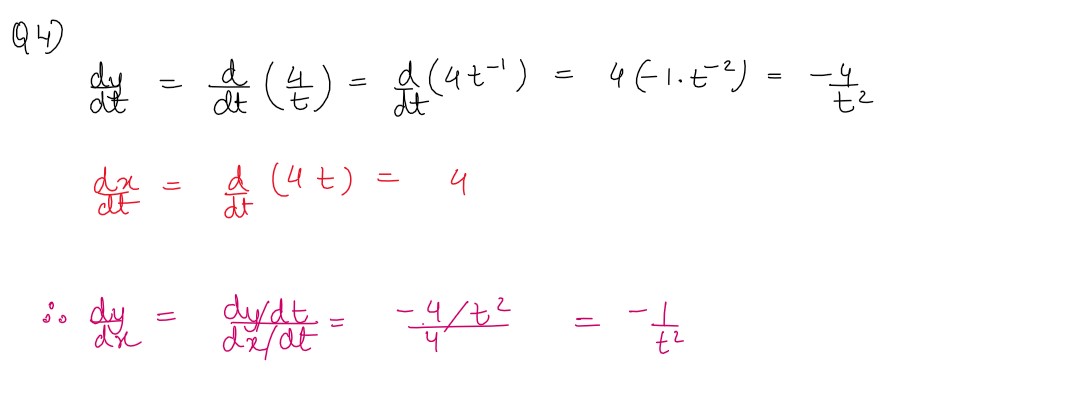 Q4)
dy/dt = d/dt (4/t) = d/dt (4t⁻¹) = 4(-1·t⁻²) = -4/t²
dx/dt = d/dt (4t) = 4
∴ dy/dx = (dy/dt)/(dx/dt) = (-4/t²)/4 = -1/t²